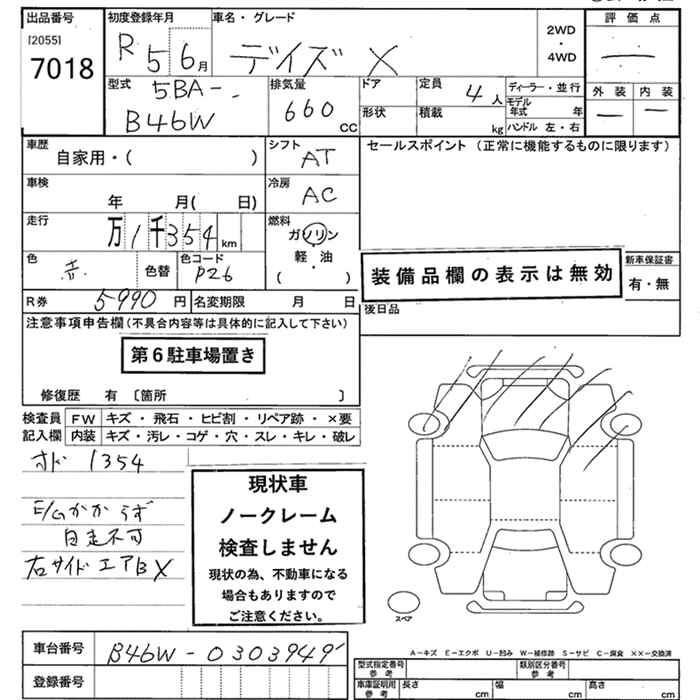 出品番号 初度登録年月 車名・グレード 評価点
[2055] R 5 6月 デイズ X 2WD・4WD
7018
型式 5BA- 排気量 ドア 定員 4人 ディーラー・並行 外装 内装
B46W 660cc 形状 積載 kg モデル年式 年
ハンドル 左・右
車歴 自家用・( ) シフト AT セールスポイント(正常に機能するものに限ります)
車検 年 月( 日) 冷房 AC
走行 万1千354km 燃料 ガソリン
軽・油
( )
色 赤 色替 色コード P26
装備品欄の表示は無効 新車保証書
有・無
R券 5990円 名変期限 月 日 後日品
注意事項申告欄(不具合内容等は具体的に記入して下さい)
第6駐車場置き
修復歴 有 〔箇所 〕
検査員 FW キズ・飛石・ヒビ割・リペア跡・×要
記入欄 内装 キズ・汚レ・コゲ・穴・スレ・キレ・破レ
オド 1354
E/Gかからず
自走不可
右サイドエアB X
現状車
ノークレーム
検査しません
現状の為、不動車になる
場合もありますので
ご注意ください。
スペア
A-キズ E-エクボ U-凹み W-補修跡 S-サビ C-腐食 ××-交換済
車台番号 B46W-0303949
登録番号
型式指定番号 参考 類別区分番号 参考
車庫証明用 参考 長さ cm 幅 cm 高さ cm